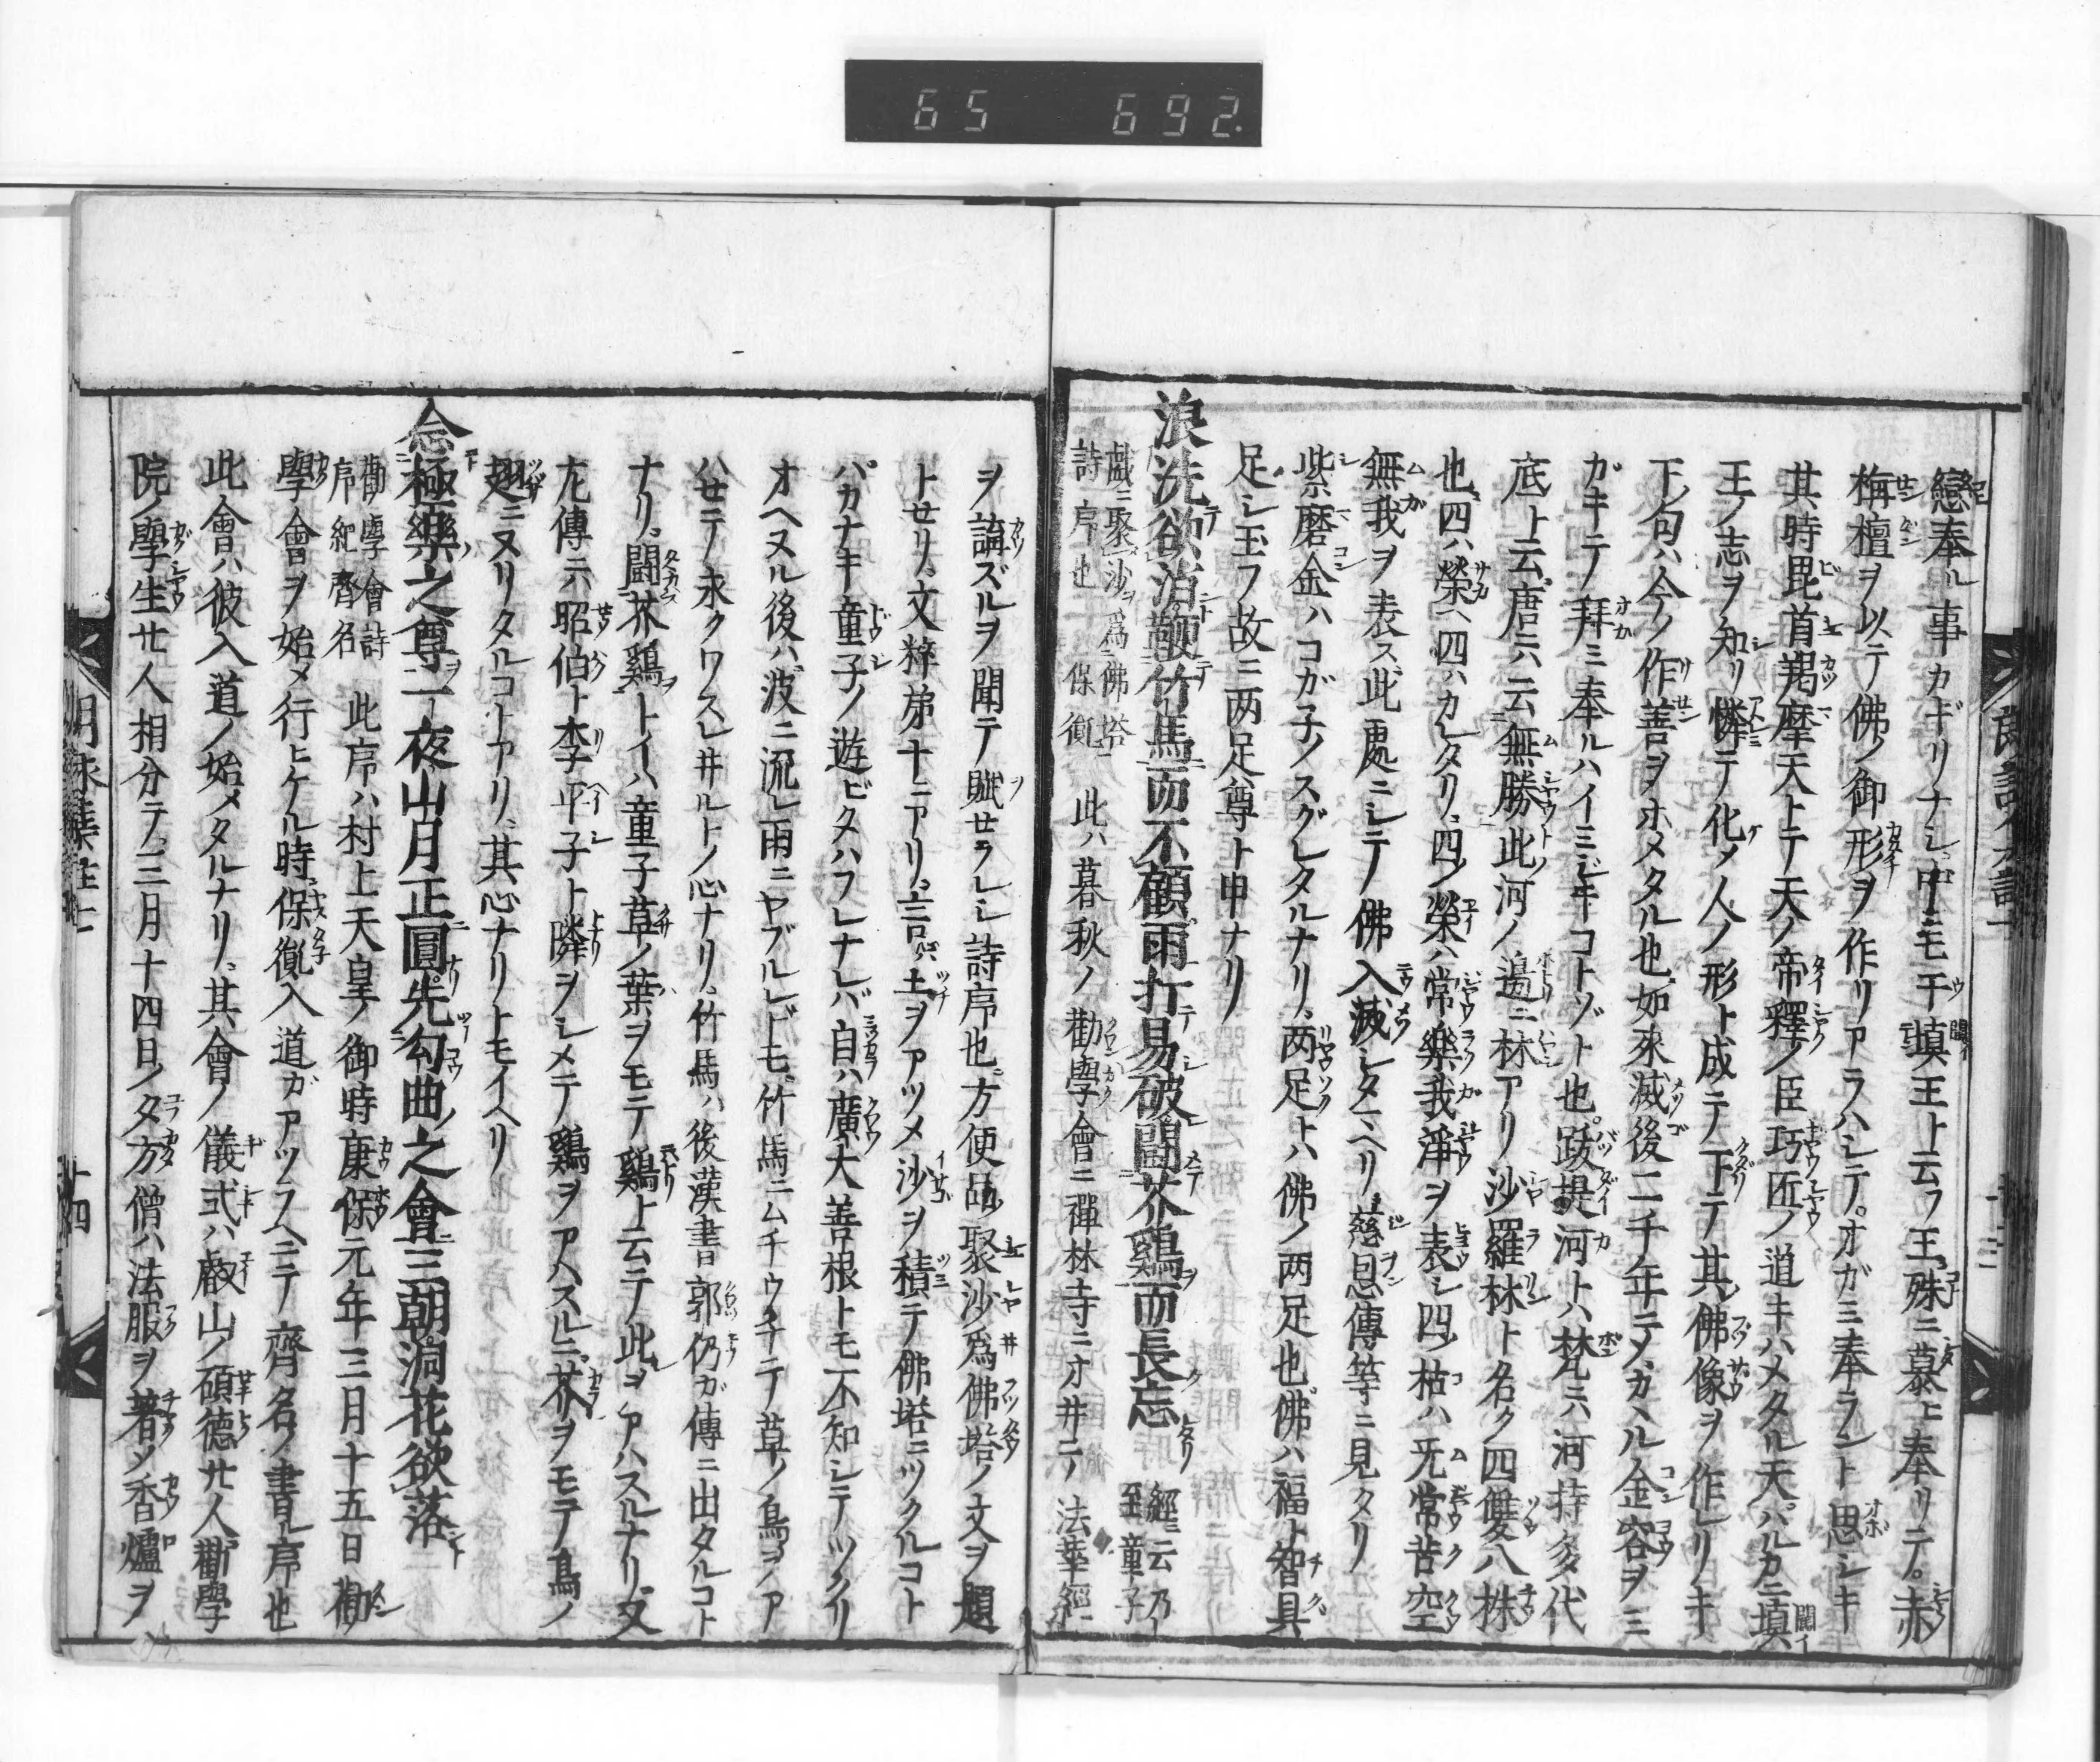 65 692.
戀奉ル事カギリナシ中ニモ于塡王ト云フ王殊ニ慕ヒ奉リテ赤
栴檀ヲ以テ佛ノ御形ヲ作リアラハシテオガミ奉ラント思シキ
其時毘首羯摩天トテ天ノ帝釋ノ臣巧匠ノ道キハメタル天ハルカニ塡
王ノ志ヲ知リ憐テ化メ人ノ形ト成テ下テ其佛像ヲ作レリキ
下ノ句ハ今ノ作善ヲホメタル也如來滅後二千年ニメカヽル金容ヲ三
ガキテ拜ミ奉ルハイミジキコトゾト也跋提河トハ梵ニハ河持多代
底ト云唐ニハ云無勝此河ノ邊ニ林アリ沙羅林ト名ク四雙八株
也四ハ榮ヘ四ハカレタリ四ノ榮ハ常樂我淨ヲ表シ四ノ枯ハ无常苦空
無我ヲ表ス此處ニシテ佛入滅シタマヘリ慈恩傳等ニ見タリ
紫磨金ハコガ子ノスグレタルナリ两足トハ佛ノ两足也佛ハ福ト智具
足シ玉フ故ニ两足尊ト申ナリ
浪洗欲消鞭竹馬而不顧雨打易破鬪芥鷄而長忘 經ニ云乃至童子
戲ニ聚沙ヲ爲佛塔
詩序也 保胤 此ハ暮秋ノ勸學會ニ禪林寺ニオ井テ法華經
ヲ講ズルヲ聞テ賦せラレシ詩序也方便品ノ聚沙爲佛塔ノ文ヲ題
トせリ文粹第十ニアリ言ハ土ヲアツメ沙ヲ積テ佛塔ニツクルコト
ハカナキ童子ノ遊ビタハフレナレバ自ハ廣大善根トモ不知シテツクリ
オヘヌル後ハ波ニ流レ雨ニヤブルレドモ竹馬ニムチウチテ草ノ鳥ヲア
ハせテ永クワスレ井ルトノ心ナリ竹馬ハ後漢書郭伋ガ傳ニ出タルコト
ナリ鬪芥鷄トイハ童子草ノ葉ヲモテ鷄ト云テ此ヲアハスルナリ又
左傳ニハ昭伯ト李平子ト隣ヲシメテ鷄ヲアハスルニ芥ヲモテ鳥ノ
翅ニヌリタルコトアリ其心ナリトモイヘリ
念極樂之尊一夜山月正圓先勾曲之會三朝洞花欲落
勸學會詩
序紀齊名 此序ハ村上天皇ノ御時康保元年三月十五日勸
學會ヲ始メ行ヒケル時保胤入道ガアツラヘニテ齊名ノ書ル序也
此會ハ彼入道ノ始メタルナリ其會ノ儀式ハ叡山ノ碩德廿人勸學
院ノ學生廿人相分テ三月十四日ノ夕方僧ハ法服ヲ著シ香爐ヲ
十四